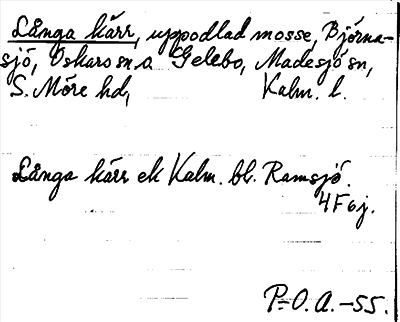 Långa kärr, uppodlad mosse, Björna-
sjö, Oskars sn. o Gelebo, Madesjö sn,
S. Möre hd, Kalm. l.
Långa kärr ek Kalm. bl. Ramsjö.
4F6j.
P.-O.A.-55.